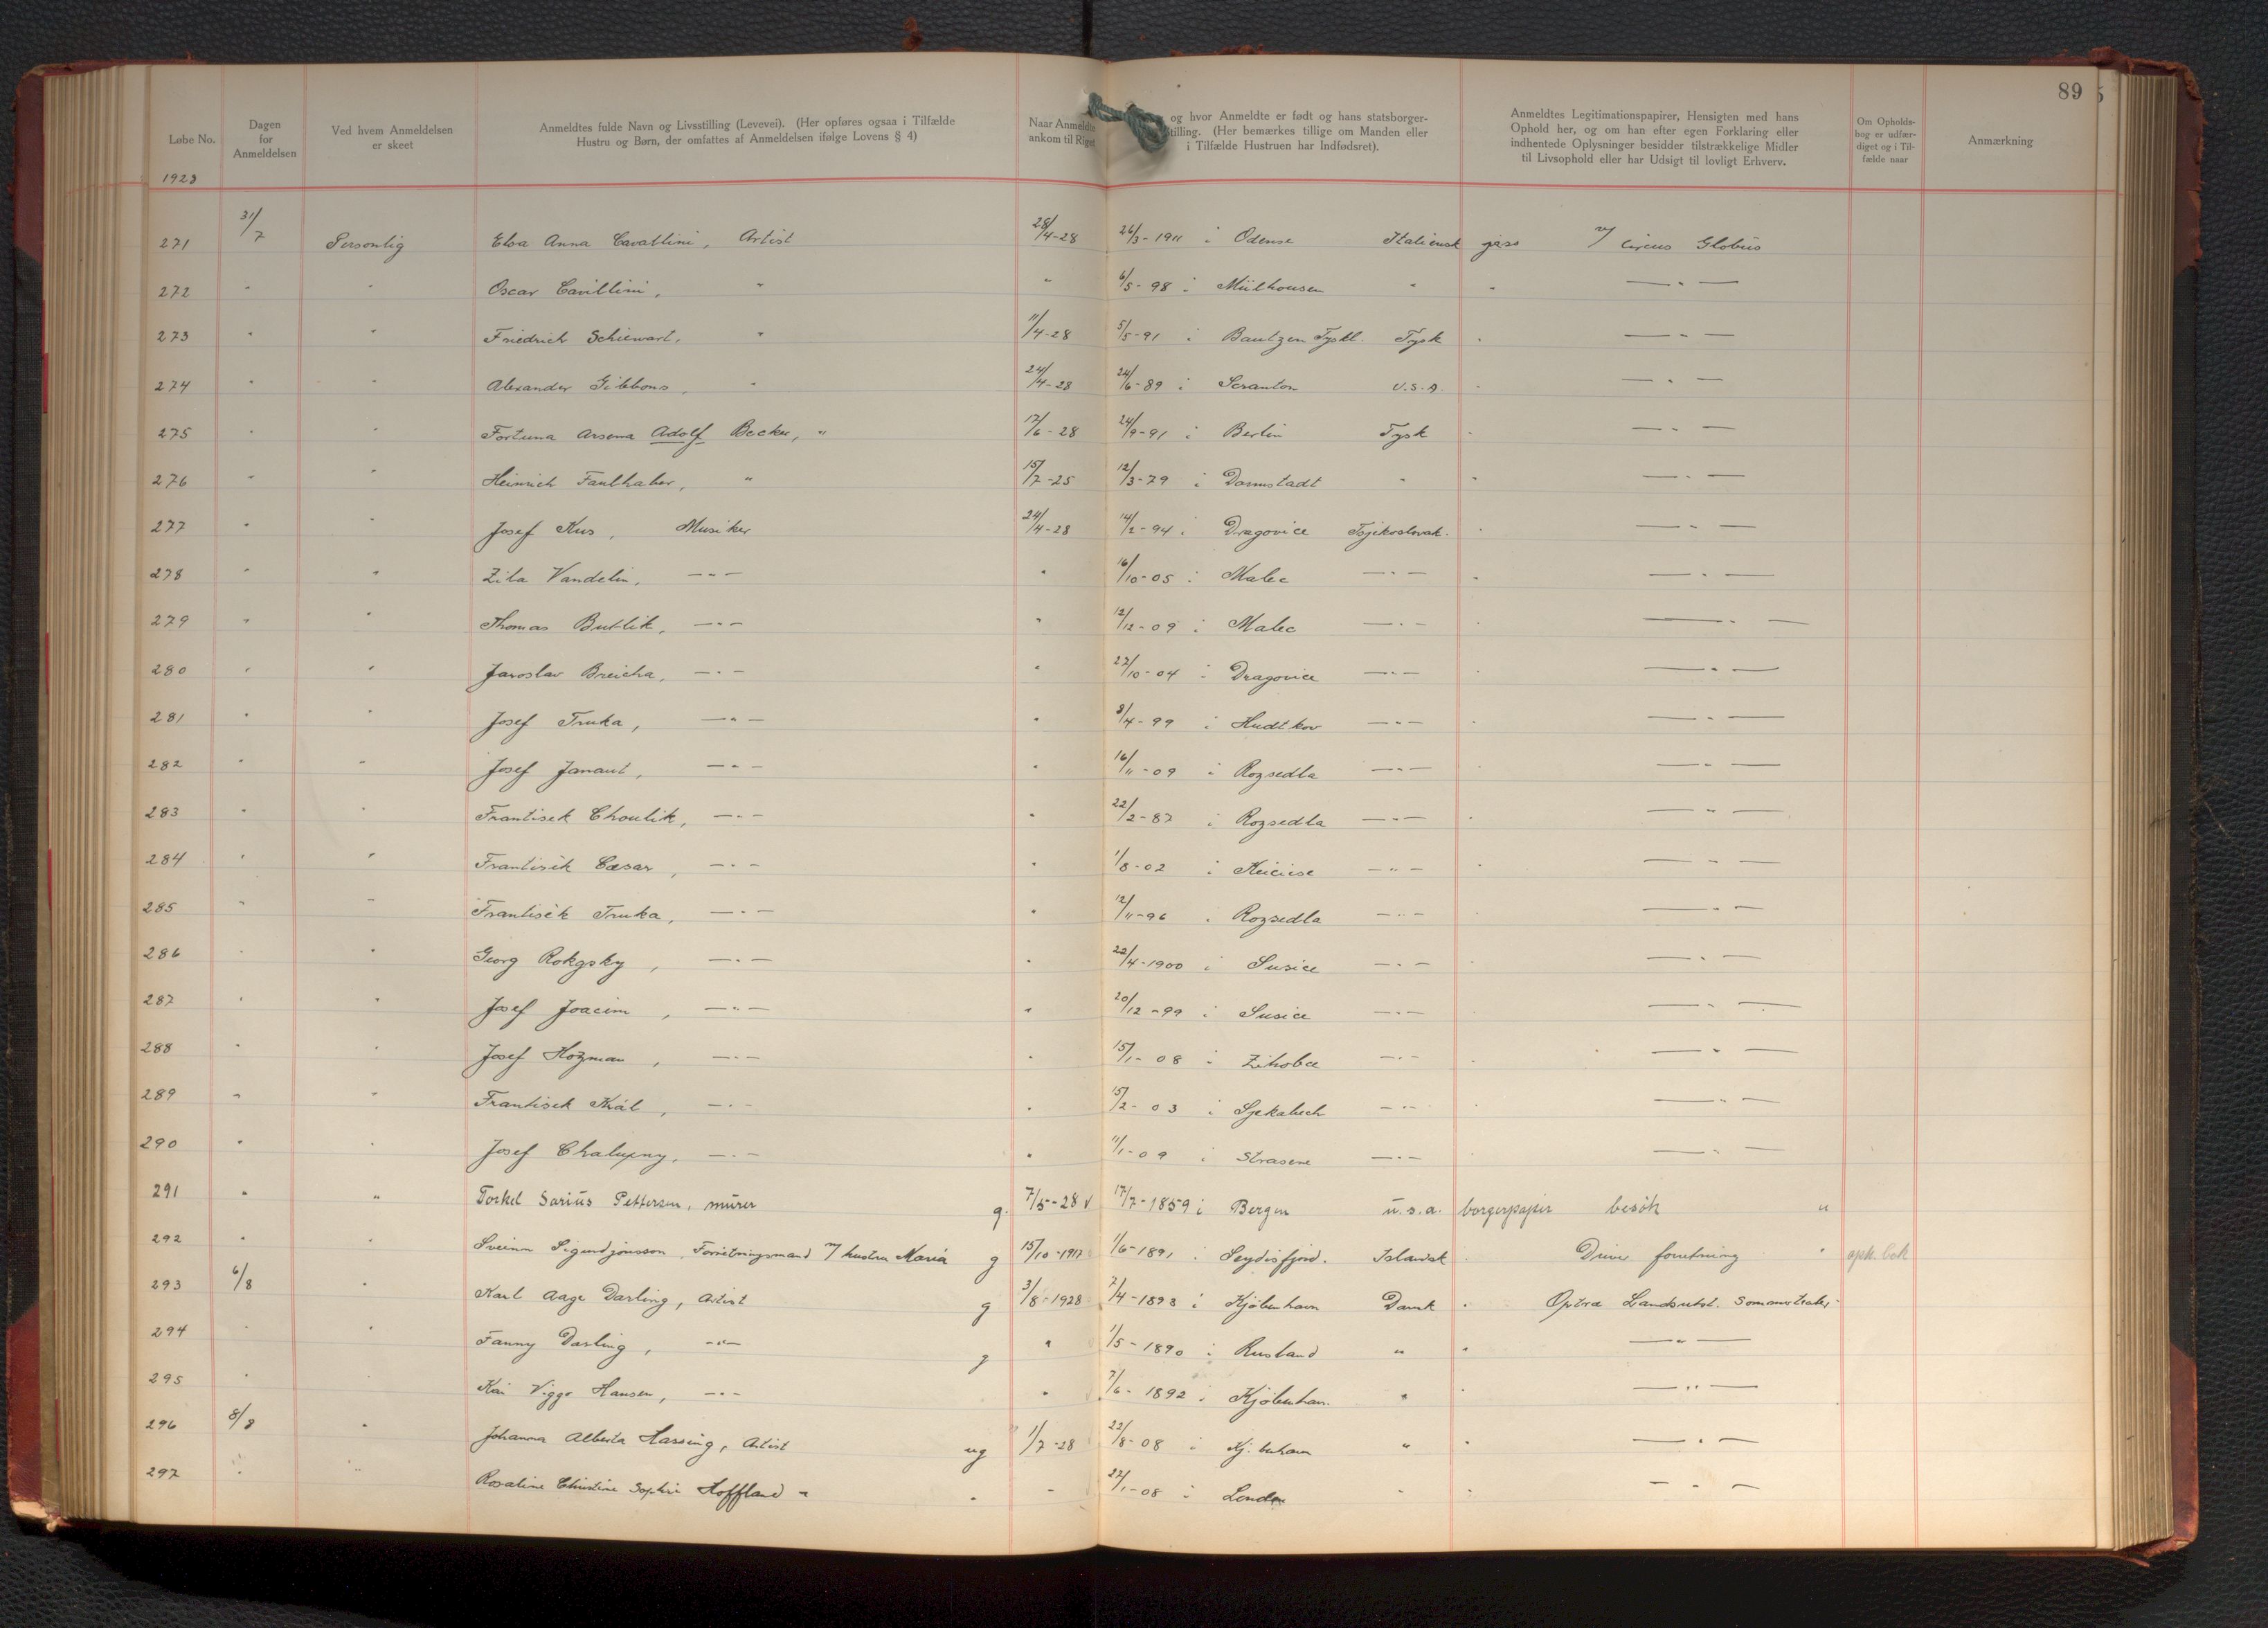 89
Løbe No.
Dagen for Anmeldelsen
Ved hvem Anmeldelsen er skeet
Anmeldtes fulde Navn og Livsstilling (Levevei). (Her opføres ogsaa i Tilfælde Hustru og Børn, der omfattes af Anmeldelsen ifølge Lovens § 4)
Naar Anmeldte ankom til Riget
og hvor Anmeldte er født og hans statsborger- stilling. (Her bemærkes tillige om Manden eller i Tilfælde Hustruen har Indfødsret).
Anmeldtes Legitimationspapirer, Hensigten med hans Ophold her, og om han efter egen Forklaring eller indhentede Oplysninger besidder tilstrækkelige Midler til Livsophold eller har Udsigt til lovligt Erhverv.
Om Opholds- bog er udfær- diget og i Til- fælde naar
Anmærkning
1928
271 31/7 Personlig Elsa Anna Cavallini, Artist 28/4-28 26/3-1911 i Odense Italiensk pass m/ Circus Globus
272 " " Oscar Cavillini, " " 6/5-98 i Mülhousen " " — " —
273 " " Friedrich Schiewart, " 11/4-28 5/5-91 i Bautzen Tyskl. Tysk " — " —
274 " " Alexander Gibbons, " 24/4-28 24/6-89 i Scranton U.S.A. " — " —
275 " " Fortuna Arsena Adolf Becker, " 17/6-28 24/9-91 i Berlin Tysk " — " —
276 " " Heinrich Faulhaber, " 15/7-25 12/3-79 i Darmstadt " " — " —
277 " " Josef Kus, Musiker 24/4-28 14/2-94 i Dragovice Tsjekoslovak. " — " —
278 " " Zila Vandelin, — " — " 16/10-05 i Malec — " — " — " —
279 " " Thomas Butlik, — " — " 12/12-09 i Malec — " — " — " —
280 " " Jaroslav Breicha, — " — " 27/10-04 i Dragovice — " — " — " —
281 " " Josef Truka, — " — " 8/4-99 i Hudtkov — " — " — " —
282 " " Josef Janaut, — " — " 16/11-09 i Rozsedla — " — " — " —
283 " " Frantisek Choulik, — " — " 22/2-87 i Rozsedla — " — " — " —
284 " " Frantisek Cæsar, — " — " 1/8-02 i — " — " — " —
285 " " Frantisek Truka, — " — " 12/11-96 i Rozsedla — " — " — " —
286 " " Georg Rokysky, — " — " 22/4-1900 i Susice — " — " — " —
287 " " Josef Joacim, — " — " 20/12-99 i Susice — " — " — " —
288 " " Josef Hozman, — " — " 15/1-08 i Zihobce — " — " — " —
289 " " Frantisek Král, — " — " 15/2-03 i — " — " — " —
290 " " Josef Chalupny, — " — " 11/1-09 i Strasene — " — " — " —
291 " " Torkel Sarius Pettersen, murer g. 7/5-28 v 17/7-1859 i Bergen u.s.a. borgerpapir besök "
292 " " Sveinn Sigurdjonsson, Forretningsmand m/ hustru Maria g 15/10-1917 1/6-1891 i Seydisfjord. Islandsk " Driver forretning " oph. bok
293 6/8 " Karl Aage Darling, Artist g 3/8-1928 7/4-1893 i Kjøbenhavn Dansk " Optræ Landsutst. Sommerteater
294 " " Fanny Darling, — " — g " 1/5-1890 i Rusland " " — " —
295 " Kai Viggo Hansen, — " — " 7/6-1892 i Kjøbenhavn. " " — " —
296 8/8 " Johanna Alberta Hassing, Artist ug 1/7-28 22/8-08 i Kj.benhavn " " — " —
297 " " Rosaline Christine Sophie Hoffland " " " 22/1-08 i London " " — " —